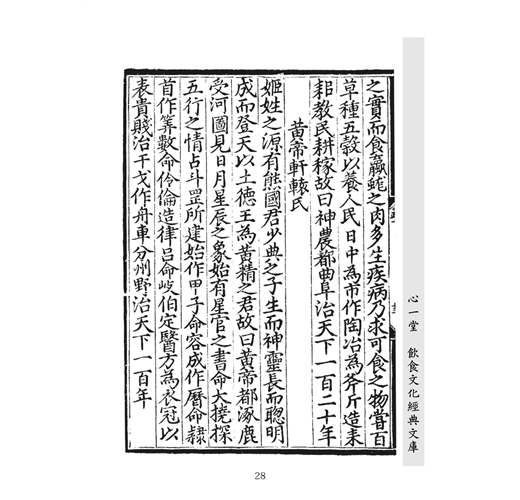 之實而食蠃蛖之肉多生疾病乃求可食之物嘗百
草種五穀以養人民日中為市作陶冶為斧斤造耒
耜教民耕稼故曰神農都曲阜治天下一百二十年
黃帝軒轅氏
姬姓之源有熊國君少典之子生而神靈長而聰明
成而登天以土德王為黃精之君故曰黃帝都涿鹿
受河圖見日月星辰之象始有星官之書命大撓探
五行之情占斗罡所建始作甲子命容成作曆命隸
首作筭數命伶倫造律呂命岐伯定醫方為衣冠以
表貴賤治干戈作舟車分州野治天下一百年
心一堂 飲食文化經典文庫
28